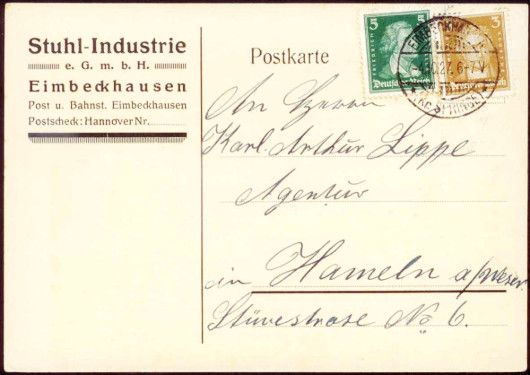 Stuhl-Industrie
e. G. m. b. H.
Eimbeckhausen
Post u. Bahnst. Eimbeckhausen
Postscheck: Hannover Nr.
Postkarte
5 5
FRIEDRICH
Deutsches Reich
3
EIMBECKHAUSEN
27. 6-7 V
An Herrn
Karl Arthur Lippe
Agentur
in Hameln a/Weser.
Stüvestrase No 6.